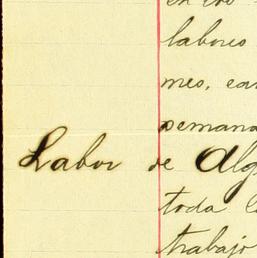 labores
mes, ca
semana
Labor de Alg
toda l
trabajo